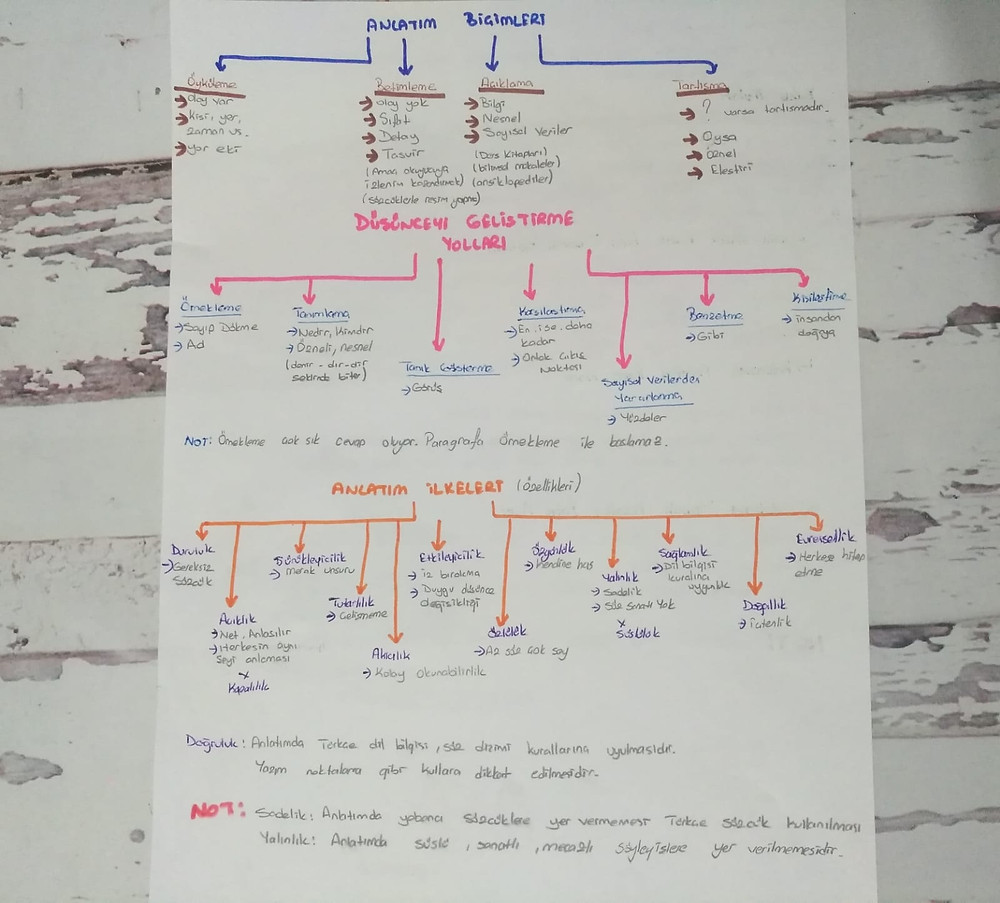 ANLATIM BİÇİMLERİ
Öyküleme
→ olay var
→ kişi, yer,
zaman vs.
→ yor eki
Betimleme
→ olay yok
→ Sıfat
→ Detay
→ Tasvir
(Amaç okuyucuya
izlenim kazandırmak)
(sözcüklerle resim yapma)
Açıklama
→ Bilgi
→ Nesnel
→ Sayısal Veriler
(Ders kitapları)
(bilimsel makaleler)
(ansiklopediler)
Tartışma
→ ? varsa tartışmadır.
→ Oysa
→ öznel
→ Eleştiri
DÜŞÜNCEYİ GELİŞTİRME
YOLLARI
Örnekleme
→ Sayıp Dökme
→ Ad
Tanımlama
→ Nedir, Kimdir
→ Öznel, nesnel
(denir - dır-dir
şeklinde biter)
Tanık Gösterme
→ Görüş
Karşılaştırma
→ En, ise, daha
kadar
→ Ortak Çıkış
Noktası
Sayısal Verilerden
Yararlanma
→ Yüzdeler
Benzetme
→ Gibi
Kişileştirme
→ insandan
doğaya
NOT: Örnekleme çok sık cevap oluyor. Paragrafa Örnekleme ile başlamaz.
ANLATIM İLKELERİ (özellikleri)
Duruluk
→ Gereksiz
sözcük
Açıklık
→ Net, Anlaşılır
→ Herkesin aynı
şeyi anlaması
x
Kapalılık
Sürükleyicilik
→ merak unsuru
Tutarlılık
→ Çelişmeme
Akıcılık
→ Kolay okunabilirlik
Etkileyicilik
→ iz bırakma
→ Duygu düşünce
değişikliği
Özlülük
→ Az söz çok şey
Özgünlük
→ Kendine has
Yalınlık
→ Sadelik
→ Söz sanatı Yok
x
Süslülük
Sağlamlık
→ Dil bilgisi
kuralına
uygunluk
Doğallık
→ İçtenlik
Evrensellik
→ Herkese hitap
etme
Doğruluk: Anlatımda Türkçe dil bilgisi, söz dizimi kurallarına uyulmasıdır.
Yazım noktalama gibi kullara dikkat edilmesidir.
NOT: Sadelik: Anlatımda yabancı sözcüklere yer vermemesi Türkçe sözcük kullanılması
Yalınlık: Anlatımda süslü, sanatlı, mecazlı söyleyişlere yer verilmemesidir.